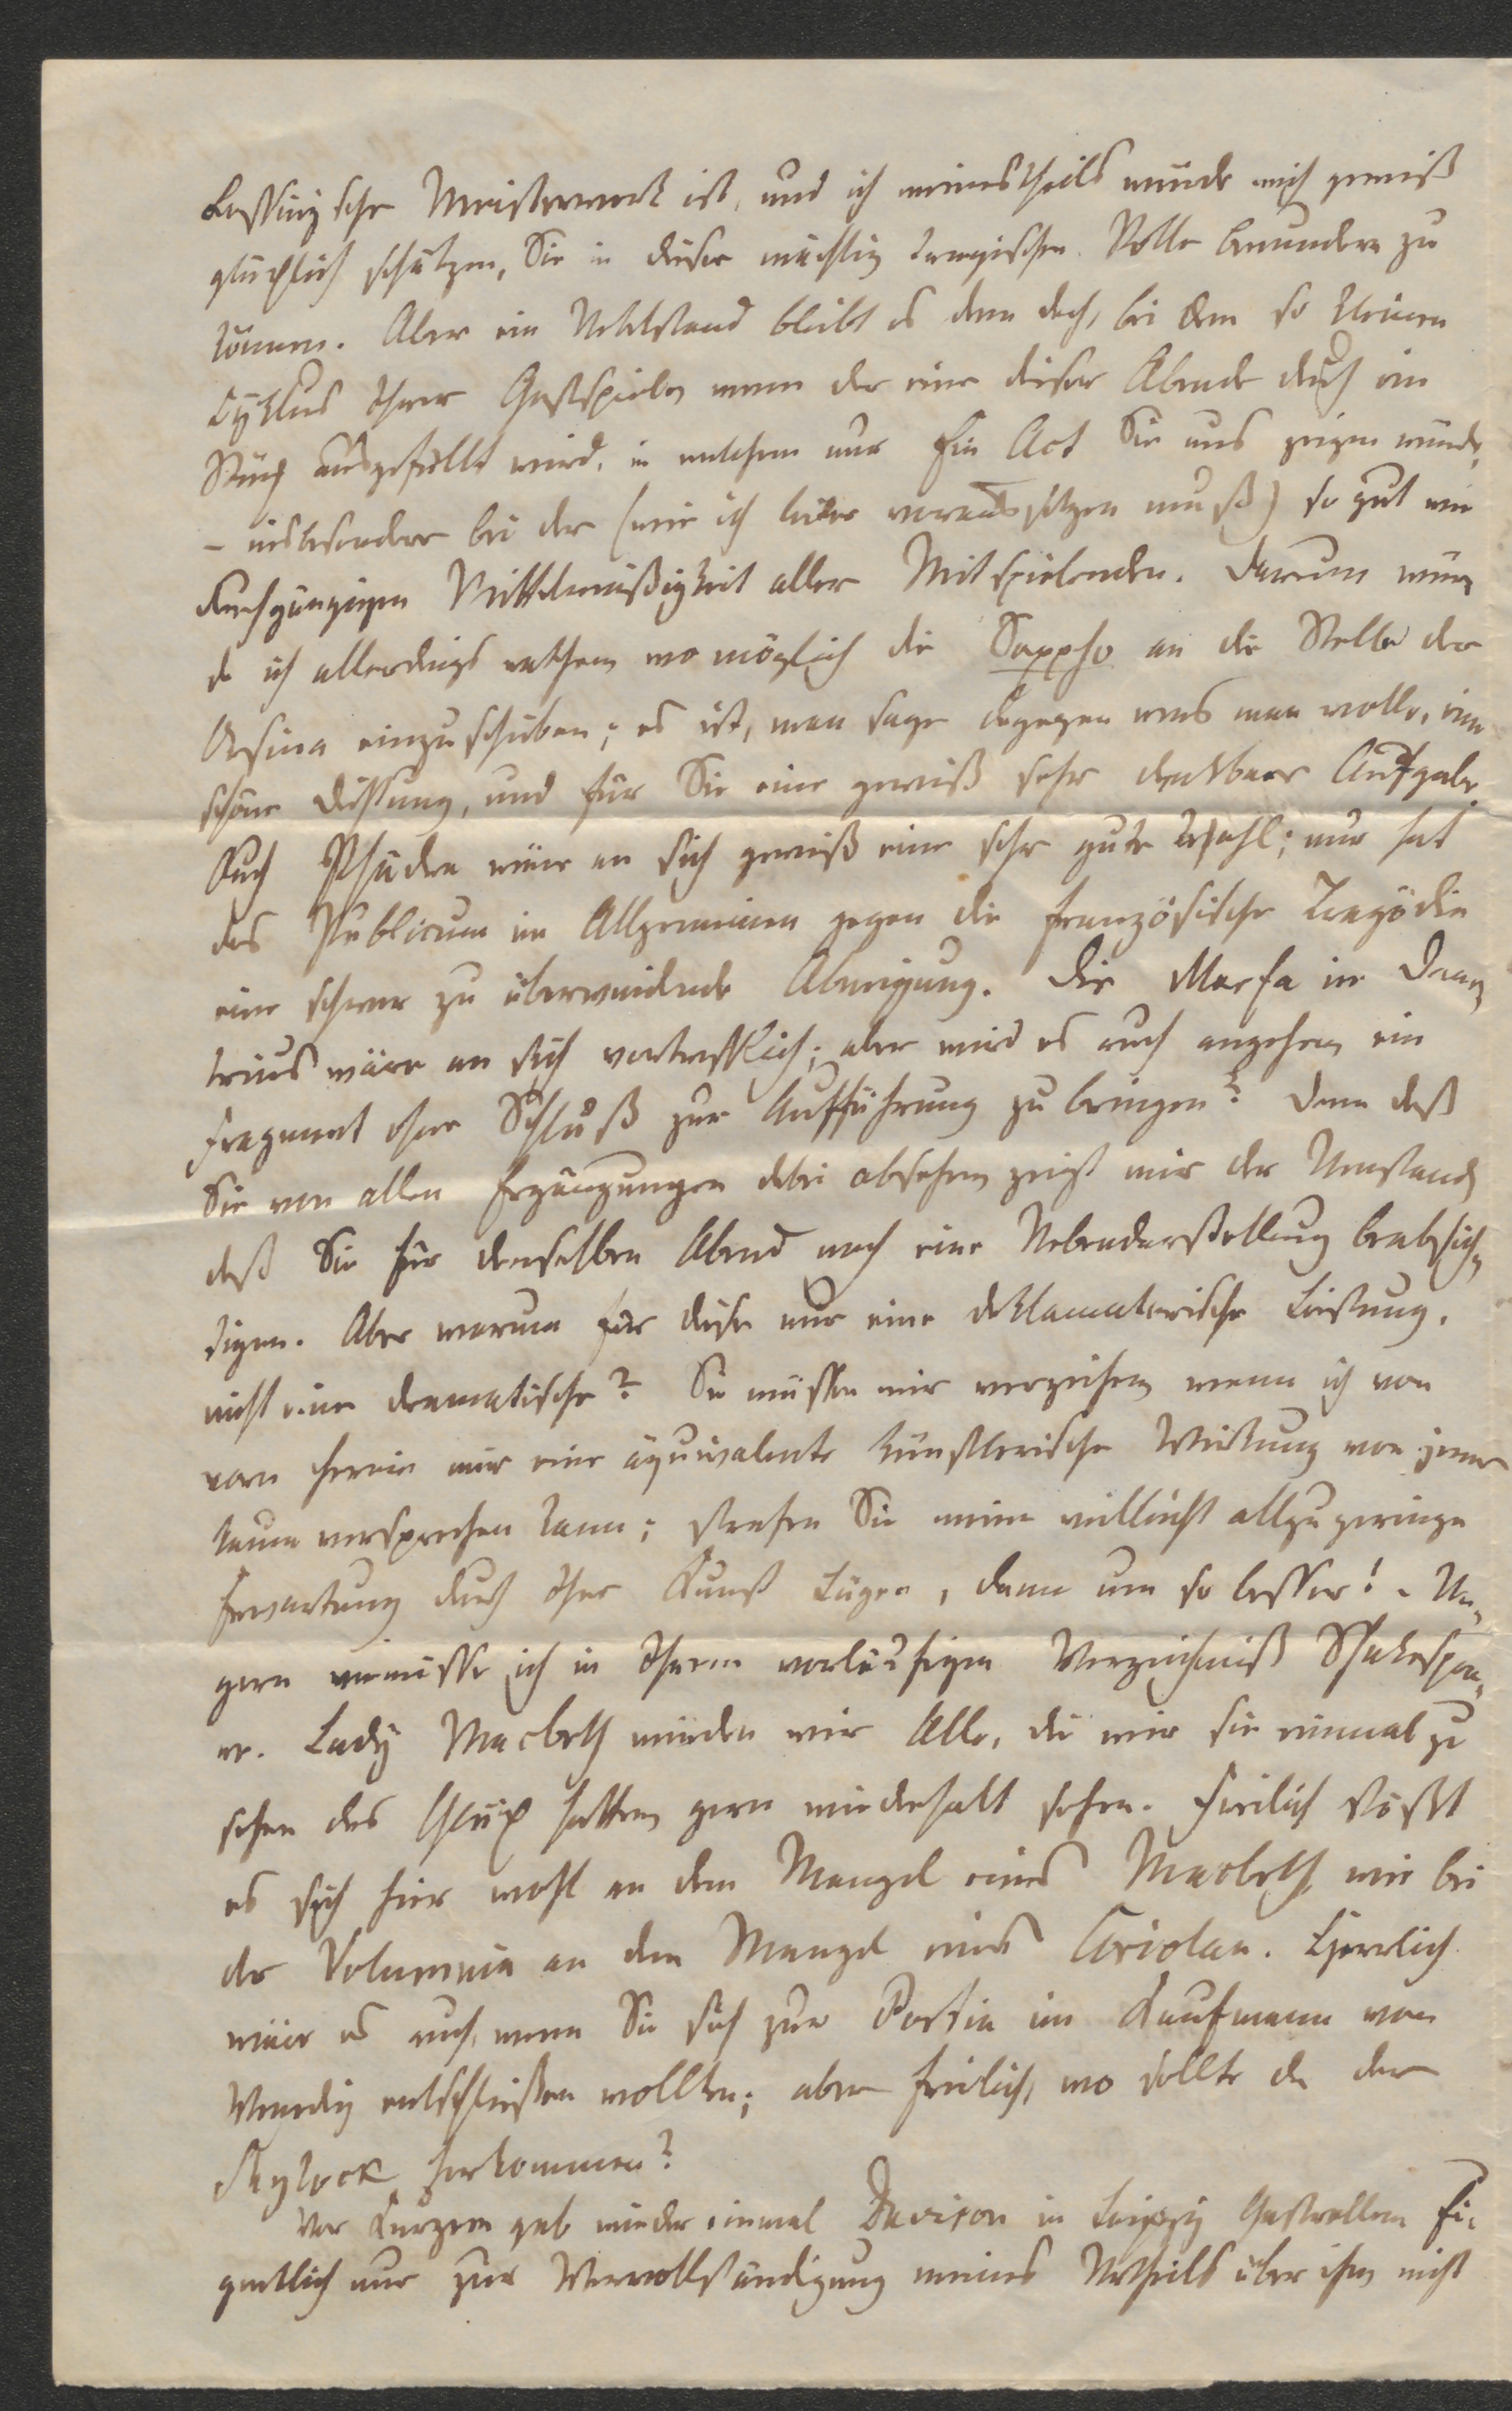 Lessingsche Meisterwerk ist, und ich meinestheils würde mich gewiß
glücklich schätzen, Sie in dieser mächtig tragischen Rolle bewundern zu
können. Aber ein Uebelstand bleibt es denn doch, bei dem so kleinen
Cyklus Ihrer Gastspiele, wenn der eine dieser Abende durch ein
Stück ausgefüllt wird, in welchem nur Ein Act Sie uns zeigen würde,
– insbesondere bei der (wie ich leider voraussetzen muß) so gut wie
durchgängigen Mittelmäßigkeit aller Mitspielenden. Darum wür-
de ich allerdings rathen wo möglich die Sappho an die Stelle der
Orsina einzuschieben; es ist, man sage dagegen was man wolle, eine
schöne Dichtung, und für Sie eine gewiß sehr dankbare Aufgabe.
Auch Phädra wäre an sich gewiß eine sehr gute Wahl; nur hat
das Publicum im Allgemeinen gegen die französische Tragödie
eine schwer zu überwindende Abneigung. Die Marfa im Deme-
trius wäre an sich vortrefflich; aber wird es auch angehen ein
Fragment ohne Schluß zur Aufführung zu bringen? Denn daß
Sie von allen Ergänzungen dabei absehen zeigt mir der Umstand,
daß Sie für denselben Abend noch eine Nebendarstellung beabsich-
tigen. Aber warum für diese nur eine deklamatorische Leistung,
nicht eine dramatische? Sie müssen mir verzeihen wenn ich von
vorn herein mir eine äquivalente künstlerische Wirkung von jener
kaum versprechen kann; strafen Sie meine vielleicht allzu geringe
Erwartung durch Ihre Kunst Lügen, dann um so besser! – Un-
gern vermisse ich in Ihrem vorläufigen Verzeichniß Shakespea-
re. Lady Macbeth würden wir Alle, die wir sie einmal zu
sehen das Glück hatten, gern wiederholt sehen. Freilich stößt
es sich hier wohl an dem Mangel eines Macbeth, wie bei
der Volumnia an dem Mangel eines Coriolan. Herrlich
wäre es auch, wenn Sie sich zur Portia im Kaufmann von
Venedig entschließen wollten; aber freilich, wo sollte da der
Shylock herkommen?
Vor Kurzem gab wieder einmal Dawison in Leipzig Gastrollen. Ei-
gentlich nur zur Vervollständigung meines Urtheils über ihn, nicht